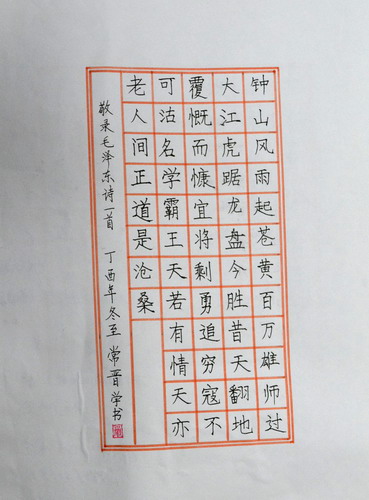 钟山风雨起苍黄百万雄师过
大江虎踞龙盘今胜昔天翻地
覆慨而慷宜将剩勇追穷寇不
可沽名学霸王天若有情天亦
老人间正道是沧桑
敬录毛泽东诗一首 丁酉年冬至 常晋学书